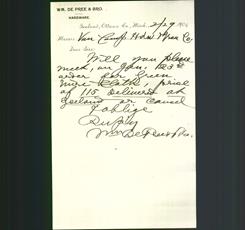 WM. DE PREE & BRO.
HARDWARE.
Zeeland, Ottawa Co., Mich. 2/29 1904
Messrs Van Camp H & I Co
Dear Sirs:
Will you please
order for Green
Wire Cloth, price
of 1.15 delivered at
Zeeland or cancel
& oblige
Wm De Pree & Bro.